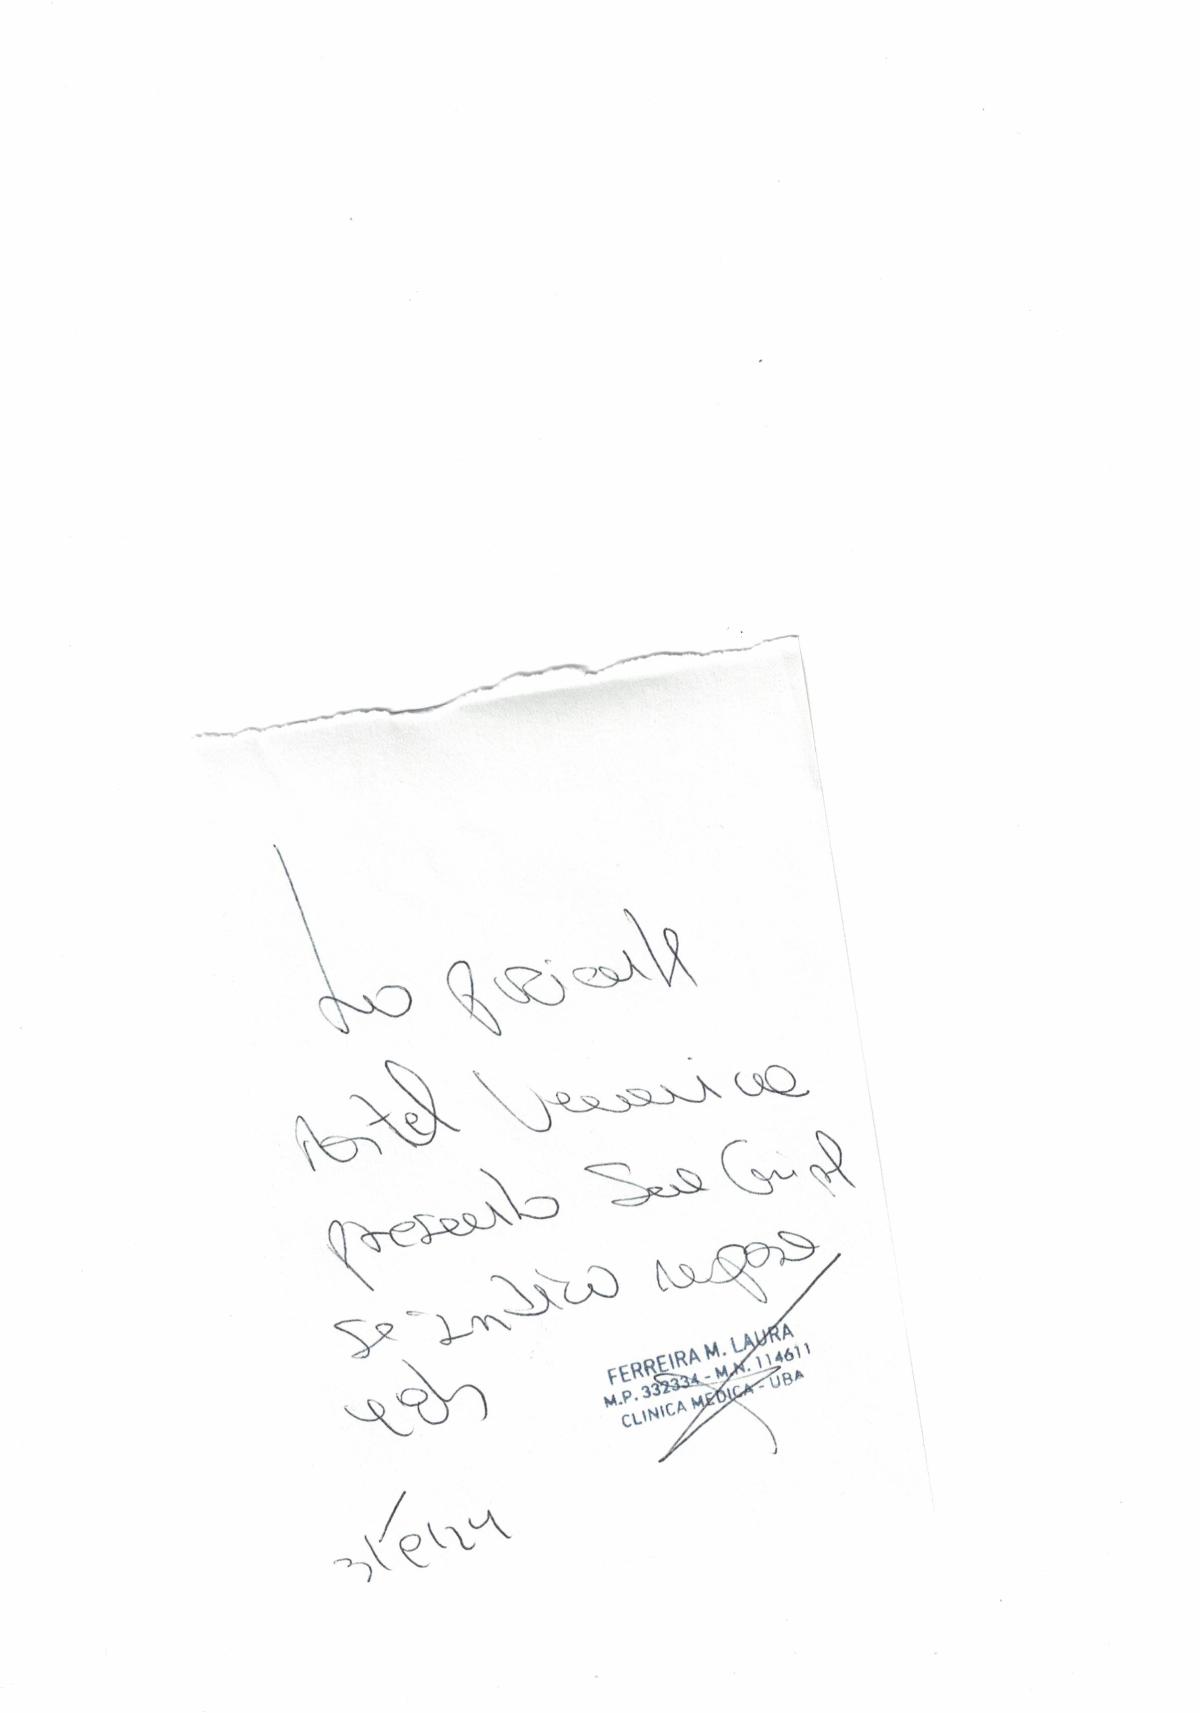 La paciente
Veronica
presento Sme Gripal
se indico reposo
FERREIRA M. LAURA
M.P. 332334 - M.N. 114611
CLINICA MEDICA - UBA